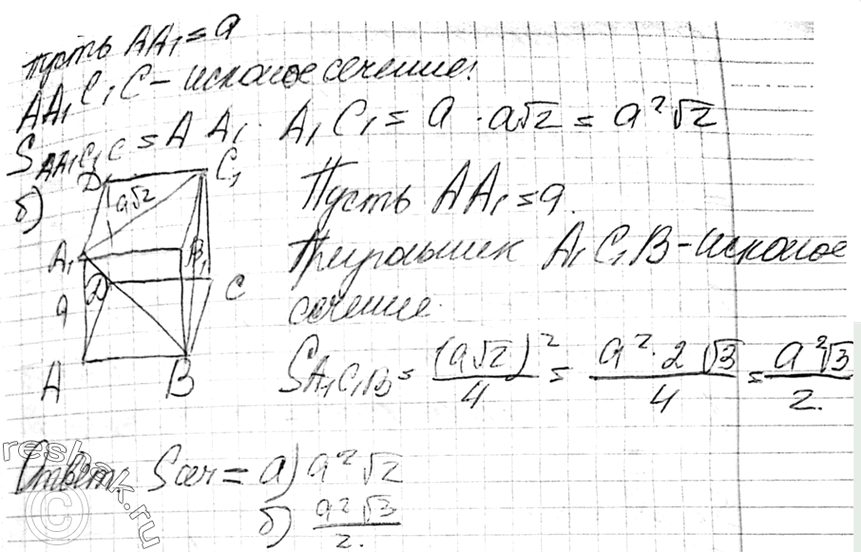 пусть AA₁ = a
AA₁C₁C – искомое сечение.
S_AA₁C₁C = AA₁ · A₁C₁ = a · a√2 = a²√2
б)
D₁ C₁
a√2
A₁ B₁
a D C
A B
Пусть AA₁ = a.
Треугольник A₁C₁B – искомое
сечение.
S_A₁C₁B = (a√2)²/4 = a²·2√3/4 = a²√3/2.
Ответ: Sсеч = а) a²√2
б) a²√3/2.
reshak.ru
©